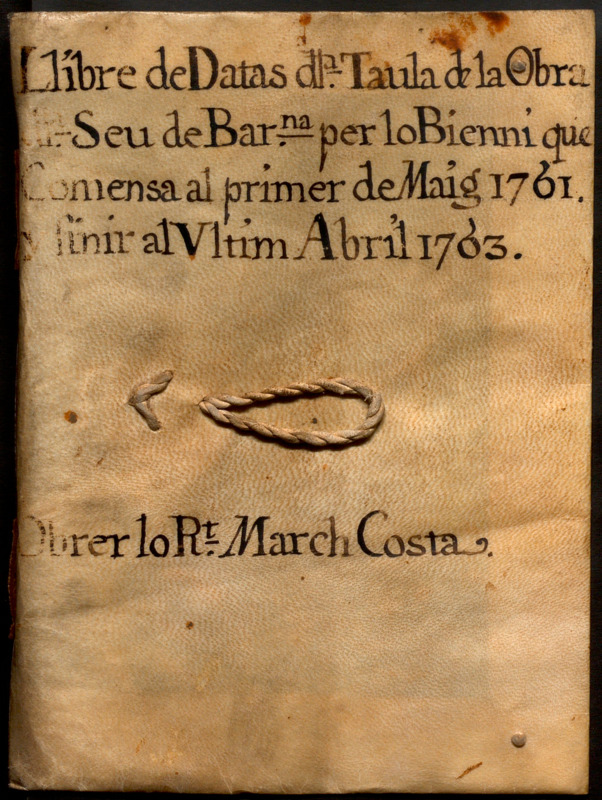 Llibre de Datas dla. Taula de la Obra
Seu de Bar.na per lo Bienni que
Comensa al primer de Maig 1761.
y finir al Vltim Abril 1763.
Obrer lo Rt. March Costa.